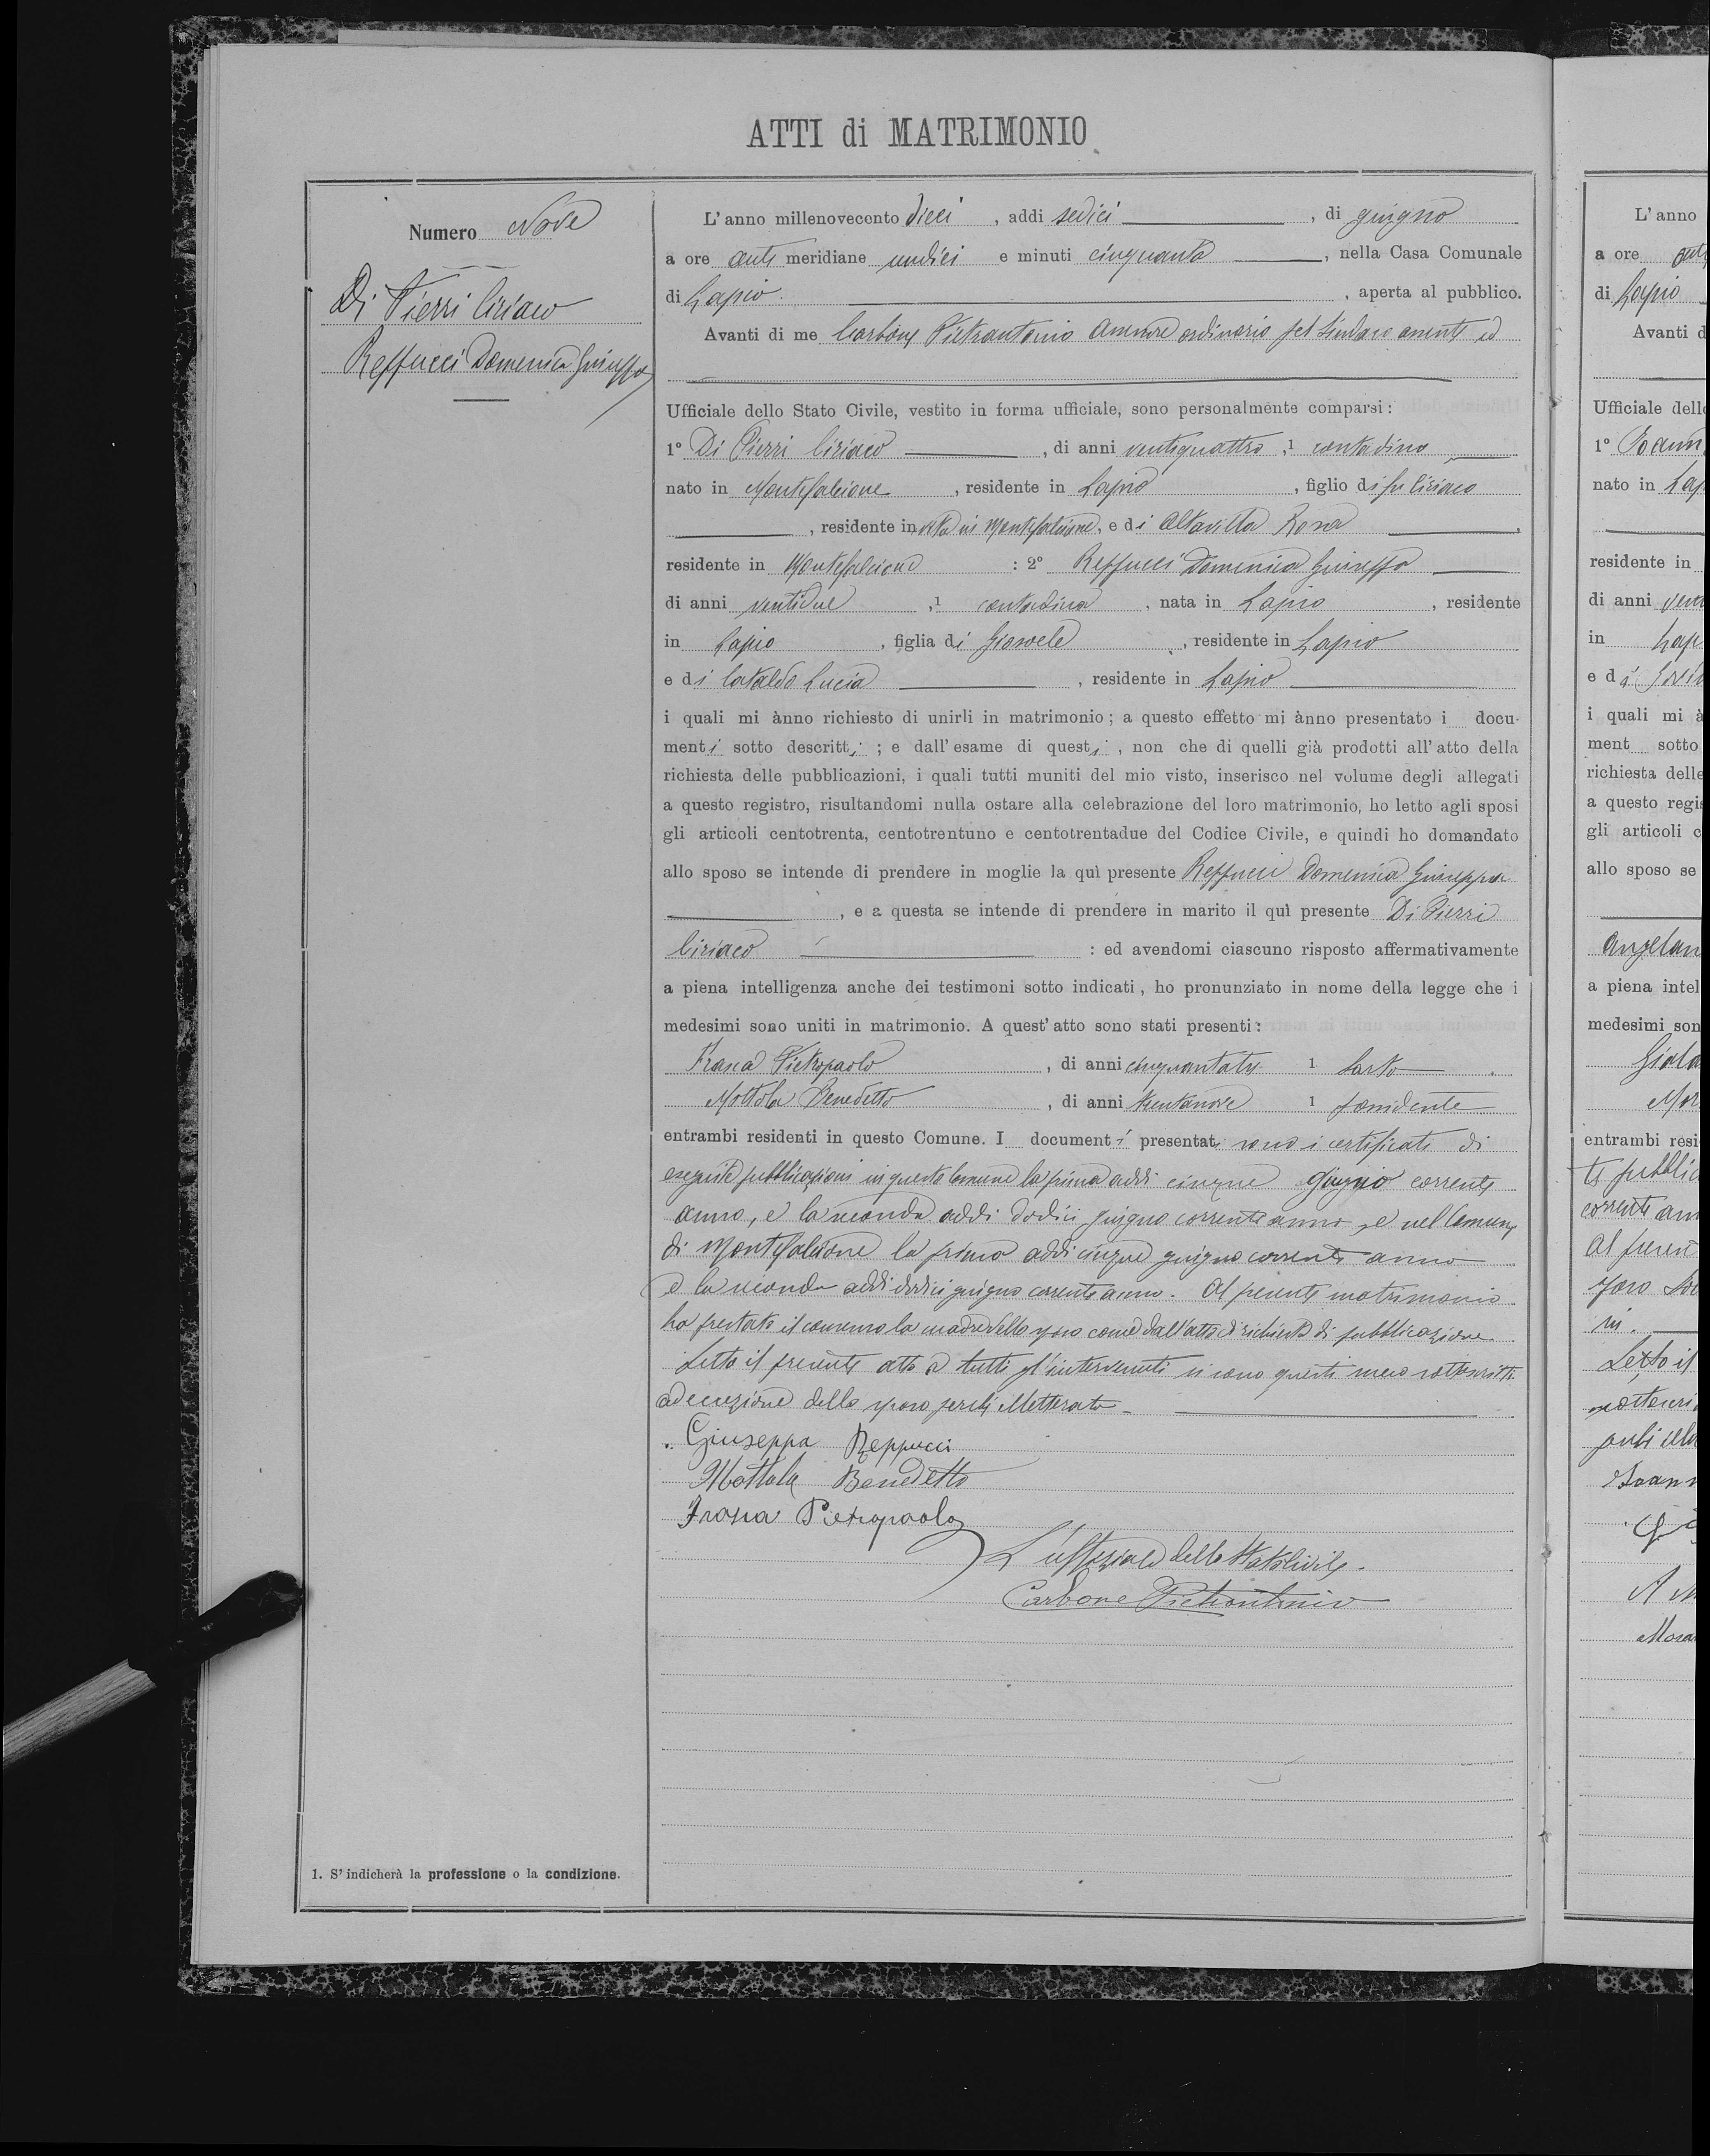 ATTI di MATRIMONIO
Numero Nove
Di Pierri Ciriaco
Reppucci Domenica Giuseppa
L'anno millenovecento dieci, addi sedici, di giugno
a ore anti meridiane undici e minuti cinquanta, nella Casa Comunale
di Lapio, aperta al pubblico.
Avanti di me Carbone Pietrantonio Assessore ordinario pel Sindaco assente ed
Ufficiale dello Stato Civile, vestito in forma ufficiale, sono personalmente comparsi:
1º Di Pierri Ciriaco, di anni ventiquattro, 1 contadino
nato in Montefalcione, residente in Lapio, figlio di fu Ciriaco
, residente in vita in Montefalcione, e di Altavilla Rosa,
residente in Montefalcione: 2º Reppucci Domenica Giuseppa
di anni ventidue, 1 contadina, nata in Lapio, residente
in Lapio, figlia di Giouele, residente in Lapio
e di Cataldo Lucia, residente in Lapio
i quali mi ànno richiesto di unirli in matrimonio; a questo effetto mi ànno presentato i docu-
menti sotto descritti; e dall'esame di questi, non che di quelli già prodotti all'atto della
richiesta delle pubblicazioni, i quali tutti muniti del mio visto, inserisco nel volume degli allegati
a questo registro, risultandomi nulla ostare alla celebrazione del loro matrimonio, ho letto agli sposi
gli articoli centotrenta, centotrentuno e centotrentadue del Codice Civile, e quindi ho domandato
allo sposo se intende di prendere in moglie la quì presente Reppucci Domenica Giuseppa
, e a questa se intende di prendere in marito il quì presente Di Pierri
Ciriaco: ed avendomi ciascuno risposto affermativamente
a piena intelligenza anche dei testimoni sotto indicati, ho pronunziato in nome della legge che i
medesimi sono uniti in matrimonio. A quest'atto sono stati presenti:
Frasca Pietropaolo, di anni cinquantatre 1 Sarto.
Mottola Benedetto, di anni trentanove 1 possidente
entrambi residenti in questo Comune. I documenti presentati sono i certificati di
eseguite pubblicazioni in questo Comune la prima addi cinque Giugno corrente
anno, e la seconda addi dodici giugno corrente anno, e nel Comune
di Montefalcione la prima addi cinque giugno corrente anno
e la seconda addi dodici giugno corrente anno. Al presente matrimonio
ha prestato il consenso la madre dello sposo come dall'atto di richiesta di pubblicazione.
Letto il presente atto a tutti gl'intervenuti si sono questi meco sottoscritti
ad eccezione dello sposo perchè illetterato
Giuseppa Reppucci
Mottola Benedetto
Frasca Pietropaolo
L'uffiziale dello Stato Civile.
Carbone Pietrantonio
1. S'indicherà la professione o la condizione.
L'anno
a ore
di Lapio
Avanti d
Ufficiale dell
1º
nato in Lap
residente in
di anni
in Lap
e di
i quali mi à
ment sotto
richiesta delle
a questo regis
gli articoli c
allo sposo se
a piena intel
medesimi son
entrambi resi
te pubblic
corrente an
Al presen
Letto il